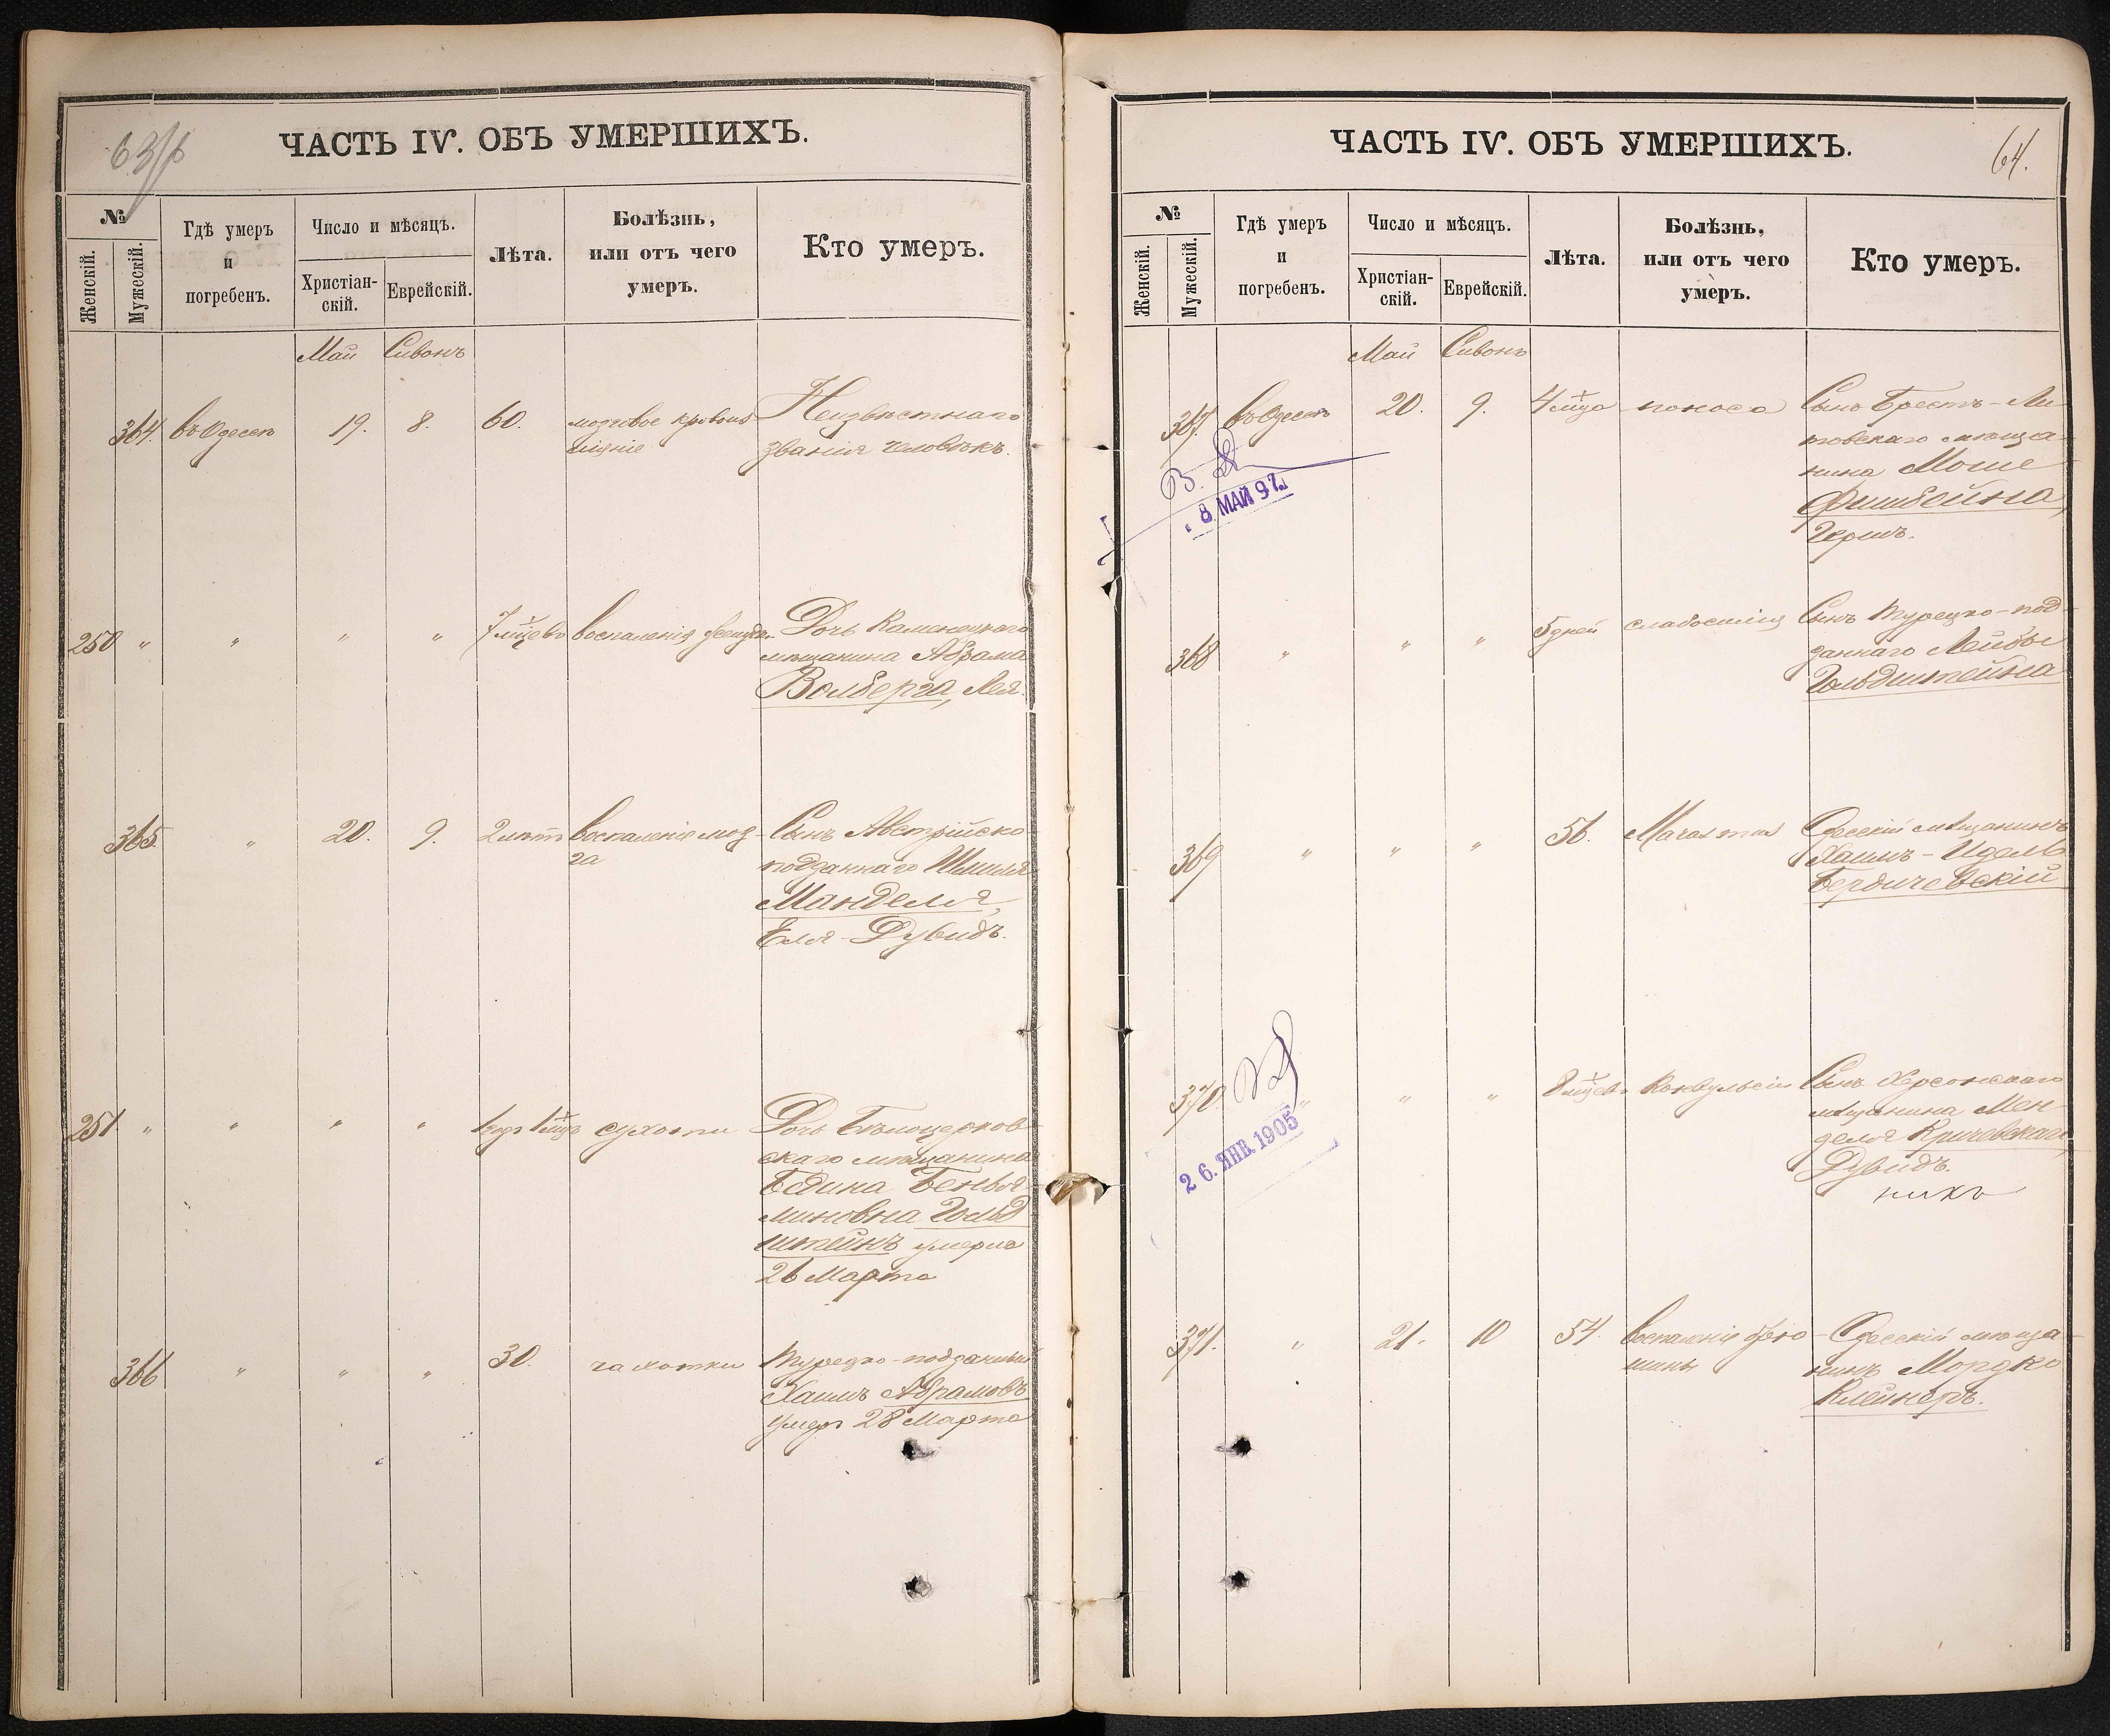 63/б
ЧАСТЬ IV. ОБЪ УМЕРШИХЪ.
№
Женскій.
Мужескій.
Гдѣ умеръ
и
погребенъ.
Число и мѣсяцъ.
Христіан-
скій.
Еврейскій.
Лѣта.
Болѣзнь,
или отъ чего
умеръ.
Кто умеръ.
Май Сивонъ
364. въ Одессѣ 19. 8. 60. мозговое Неизвѣстнаго
званія человѣкъ.
250 " " " " воспаленія Дочь Каменецкаго
мѣщанина Абрама
Волберга, Лея.
365. " 20. 9. 2 лѣтъ воспаленіе моз- Сынъ Австрійско-
га подданнаго Шмиля
Манделя,
Еля-Дувидъ.
251. " " " " 1 годъ 1 мѣцъ сухоты Дочь Бѣлоцерков-
скаго мѣщанина
Бейья-
миновна Гольд
штейнъ умерла
26 Марта
366 " " " 30. чахотки Турецко-подданный
Хаимъ Абрамовъ
умеръ 28 Марта
ЧАСТЬ IV. ОБЪ УМЕРШИХЪ.
64.
№
Женскій.
Мужескій.
Гдѣ умеръ
и
погребенъ.
Число и мѣсяцъ.
Христіан-
скій.
Еврейскій.
Лѣта.
Болѣзнь,
или отъ чего
умеръ.
Кто умеръ.
Май Сивонъ
367. въ Одессѣ 20. 9. 4 мѣца поноса Сынъ Брестъ-Ли
товскаго мѣща-
нина Моше
Фишбейна,
Гершъ.
8 МАЙ 97
368 " " " 5 дней слабосилія Сынъ Турецко-под-
даннаго Лейбы
Гольдштейна
369 " " " 56. Маразма Одесскій мѣщанинъ
Хаимъ-Идель
Бердичевскій
370. " " " 8 мѣцевъ Конвульсіи Сынъ Херсонскаго
мѣщанина Мен-
деля Кричевскаго,
Дувидъ.
26. ЯНВ. 1905
371. " 21. 10 54. воспаленіе брю- Одесскій мѣща-
шины нинъ Мордко
Клейнеръ.